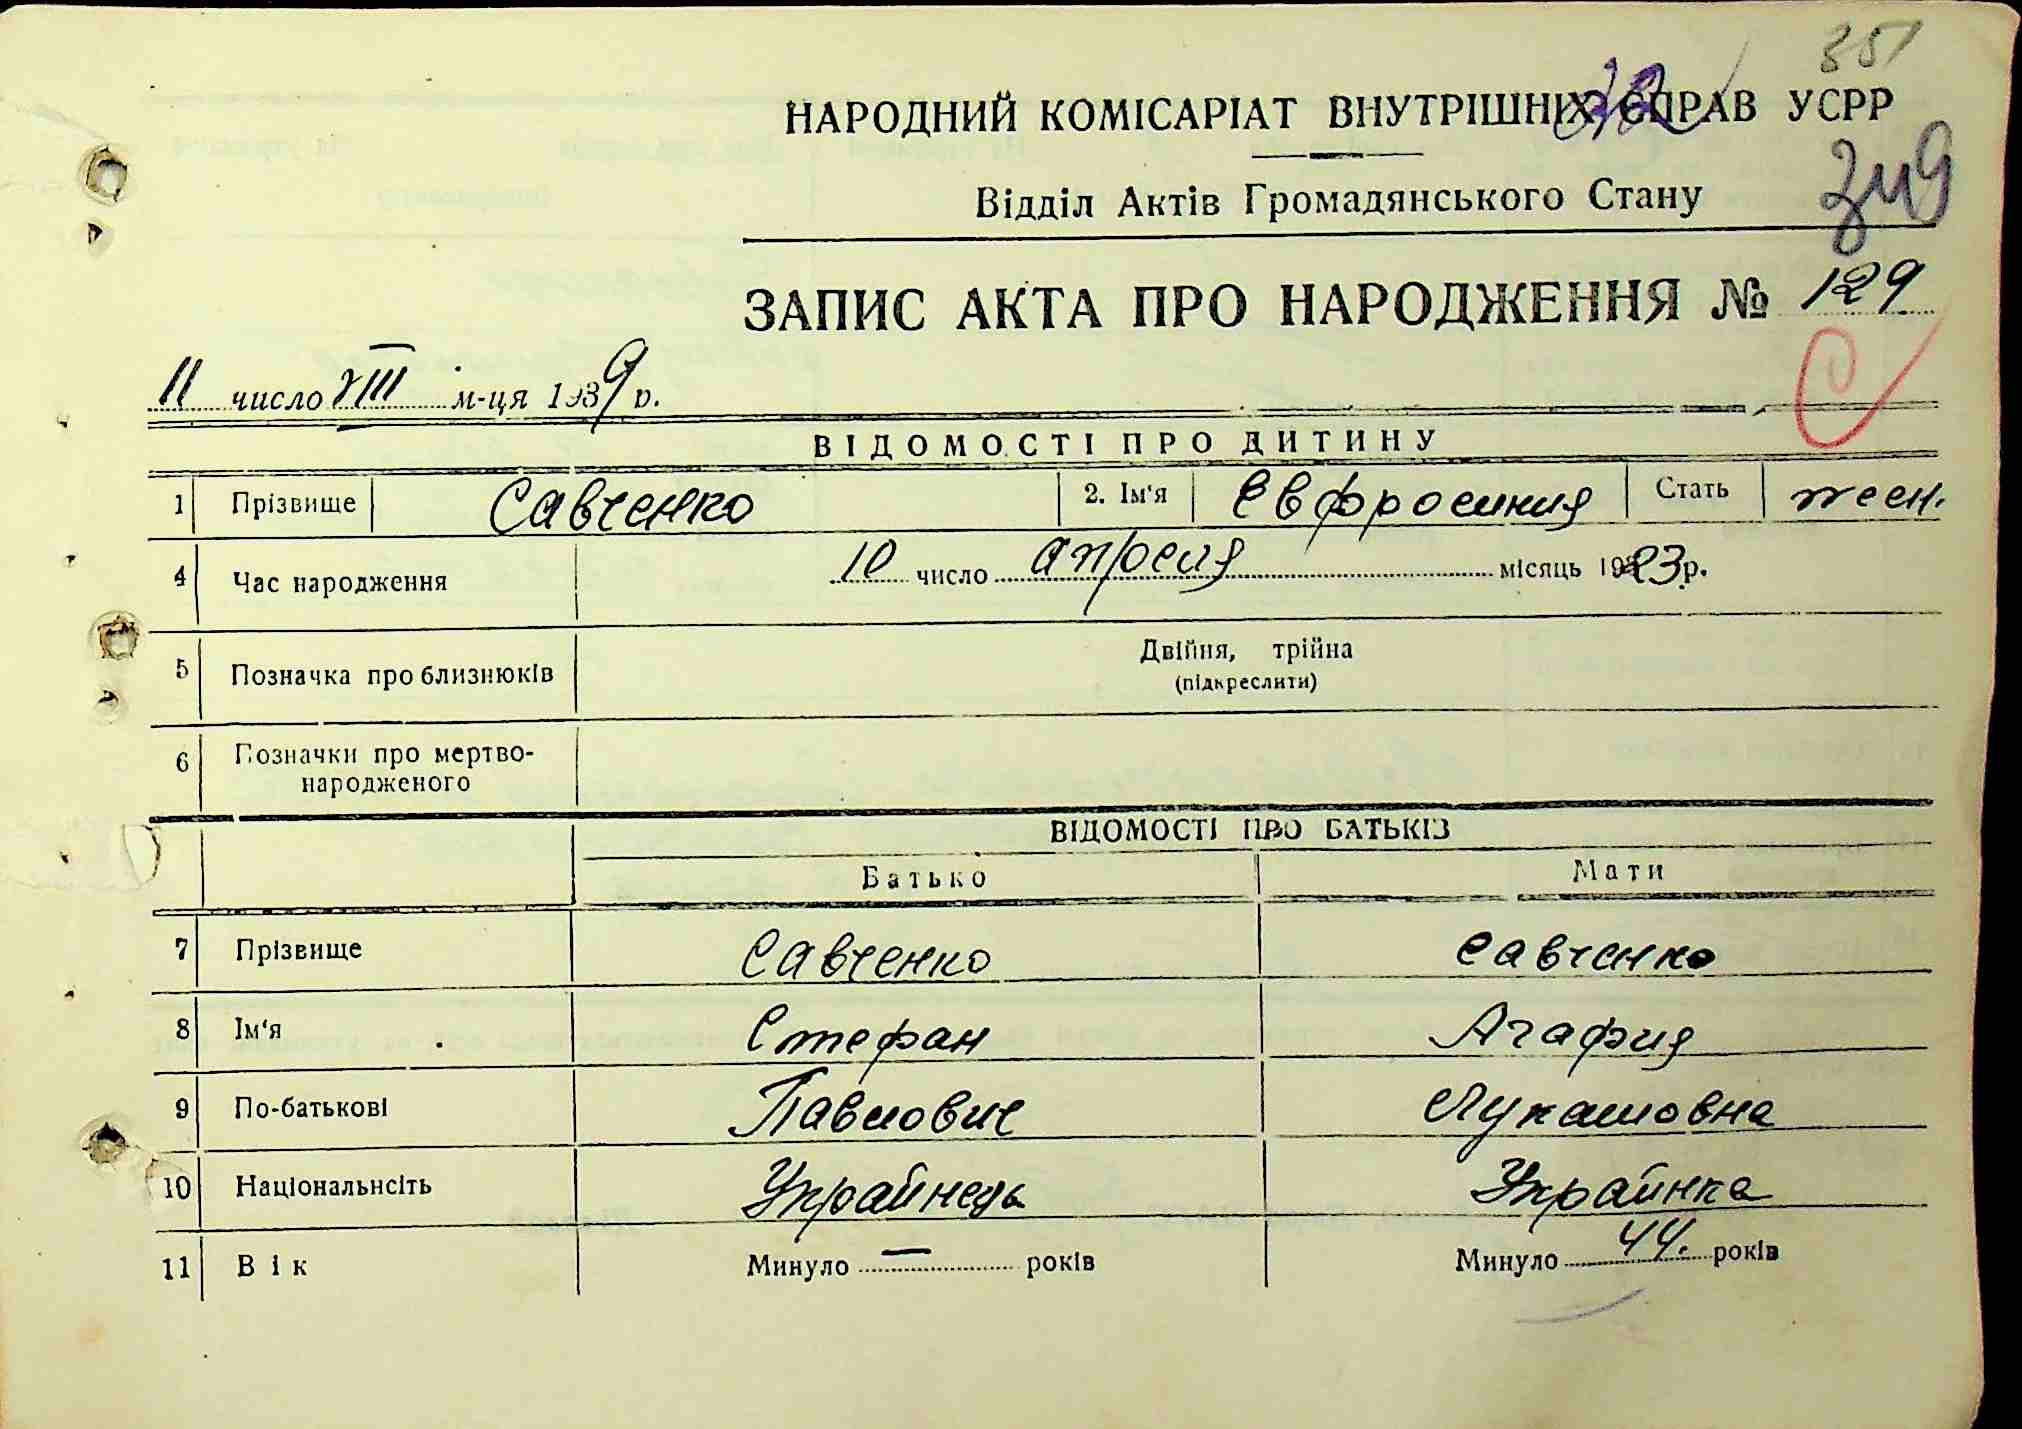 351
НАРОДНИЙ КОМІСАРІАТ ВНУТРІШНІХ СПРАВ УСРР
349
Відділ Актів Громадянського Стану
ЗАПИС АКТА ПРО НАРОДЖЕННЯ № 129
11 число VIII м-ця 1939 р.
С
ВІДОМОСТІ ПРО ДИТИНУ
1 Прізвище Савченко 2. Ім'я Евфросиния Стать жен.
4 Час народження 10 число апреля місяць 1923 р.
5 Позначка про близнюків Двійня, трійна
(підкреслити)
6 Позначки про мертво-
народженого
ВІДОМОСТІ ПРО БАТЬКІВ
Батько Мати
7 Прізвище Савченко Савченко
8 Ім'я Стефан Агафия
9 По-батькові Павлович Лукашовна
10 Національнсіть Украйнець Украинка
11 Вік Минуло — років Минуло 44. років